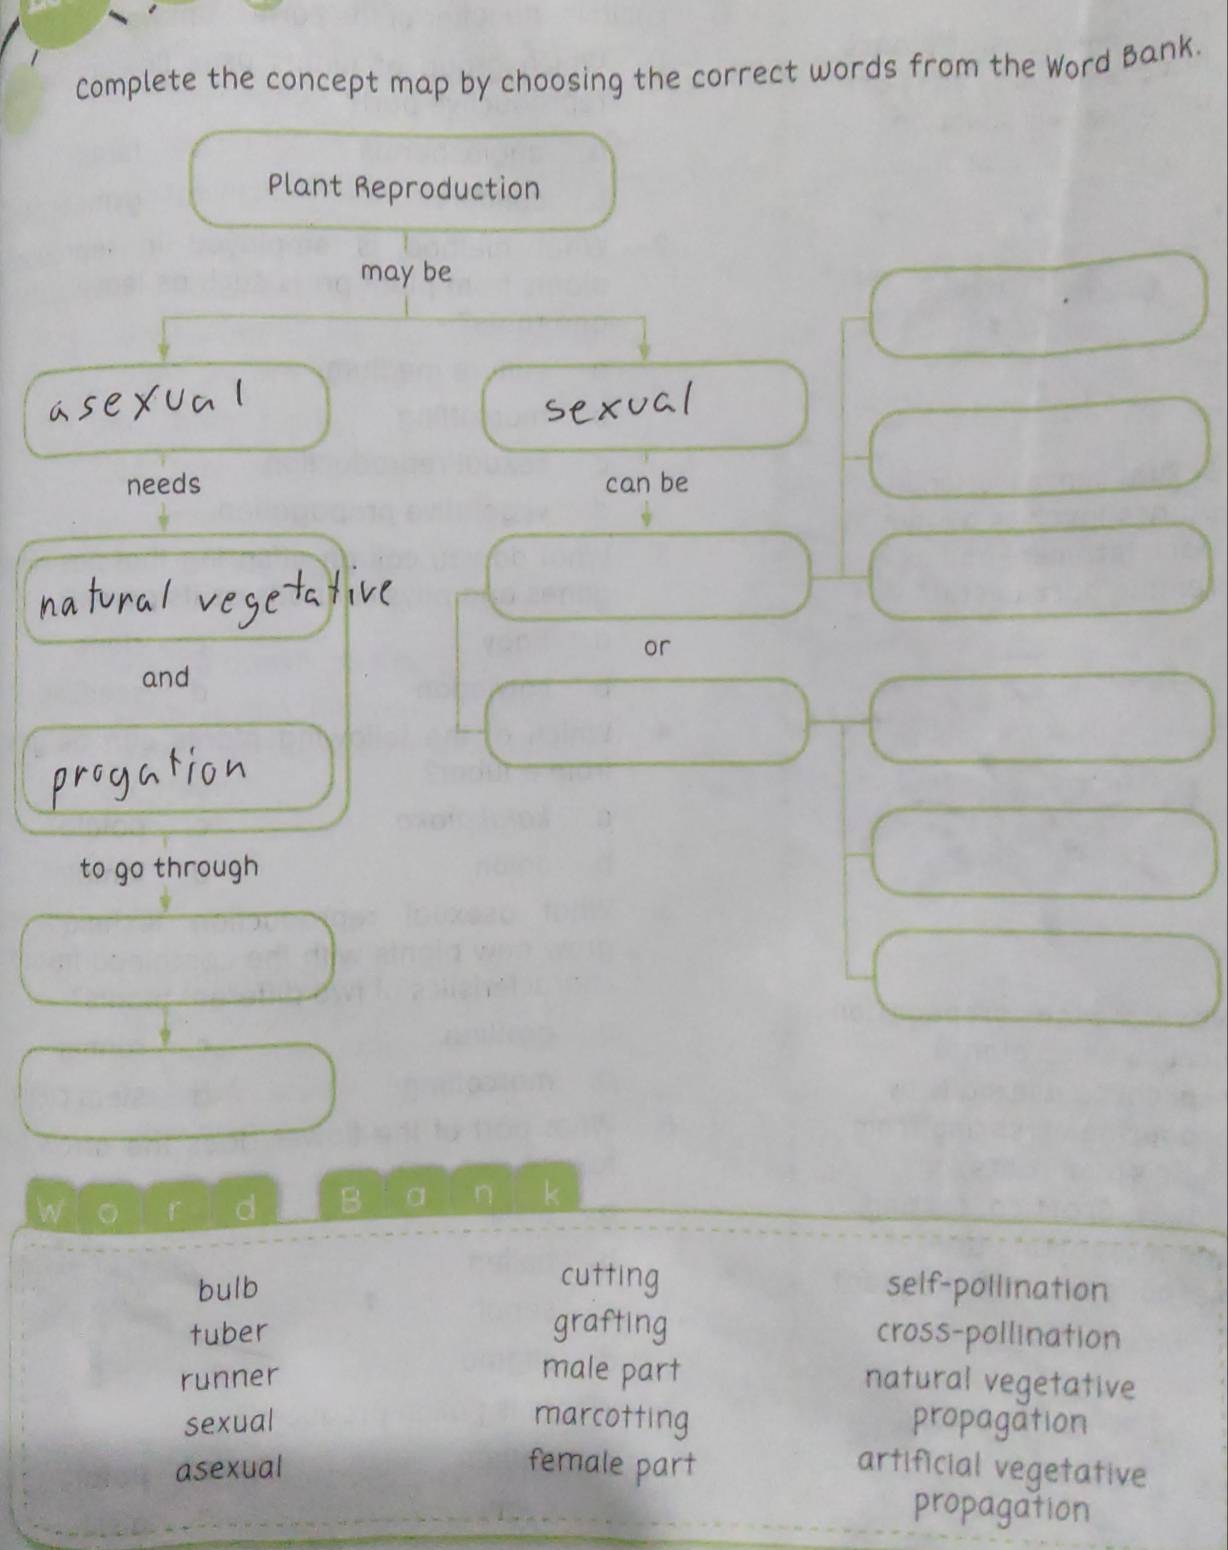 Complete the concept map by choosing the correct words from the Word Bank.
Plant Reproduction
may be
asexual
sexual
needs
can be
natural vegetative
or
and
progation
to go through
Word Bank
bulb
tuber
runner
sexual
asexual
cutting
grafting
male part
marcotting
female part
self-pollination
cross-pollination
natural vegetative
propagation
artificial vegetative
propagation